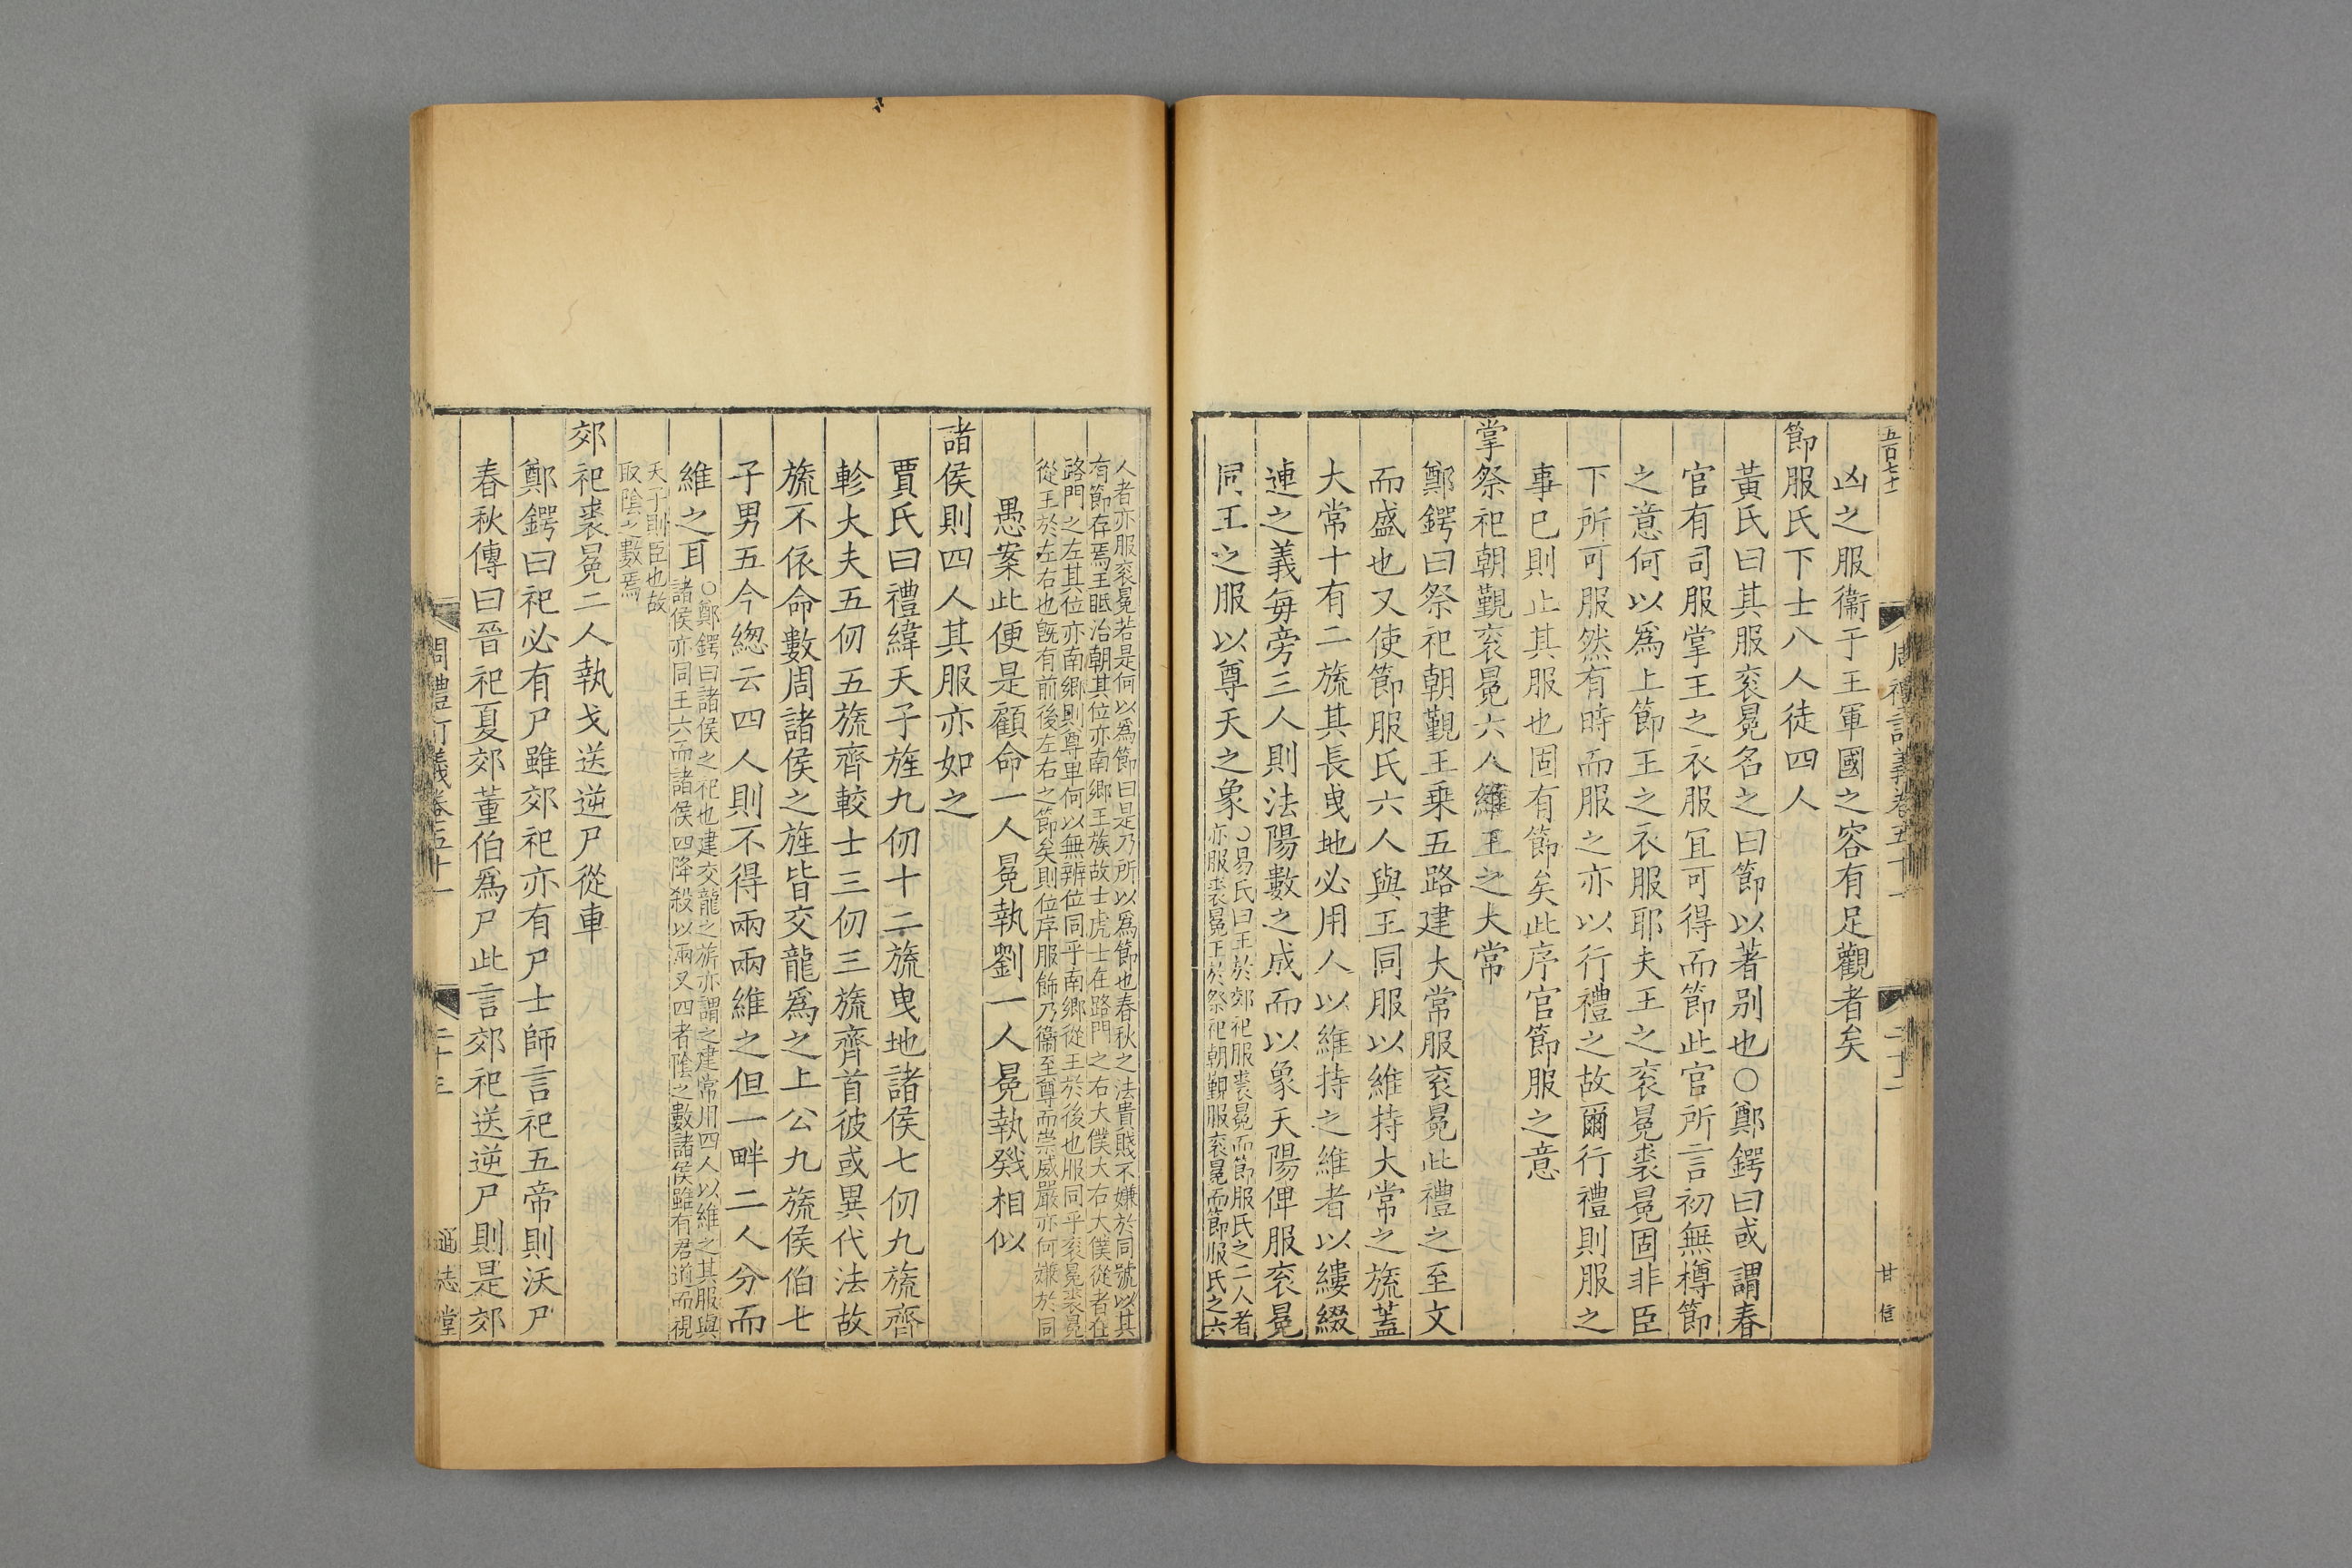 五百七十
周禮訂義卷五十一
二十二
甘
信
凶之服衞于王軍國之容有足觀者矣
節服氏下士八人徒四人
黃氏曰其服衮冕名之曰節以著別也○鄭鍔曰或謂春
官有司服掌王之衣服冝可得而節此官所言初無樽節
之意何以爲上節王之衣服耶夫王之衮冕裘冕固非臣
下所可服然有時而服之亦以行禮之故爾行禮則服之
事已則止其服也固有節矣此序官節服之意
掌祭祀朝覲衮冕六人維王之大常
鄭鍔曰祭祀朝覲王乗五路建大常服衮冕此禮之至文
而盛也又使節服氏六人與王同服以維持大常之旒蓋
大常十有二旒其長曳地必用人以維持之維者以縷綴
連之義每旁三人則法陽數之成而以象天陽俾服衮冕
同王之服以尊天之象
○易氏曰王於郊祀服裘冕而節服氏之二人者
亦服裘冕王於祭祀朝覲服衮冕而節服氏之六
人者亦服衮冕若是何以爲節曰是乃所以爲節也春秋之法貴賤不嫌於同號以其
有節存焉王眡治朝其位亦南鄉王族故士虎士在路門之右大僕大右大僕從者在
路門之左其位亦南鄉則尊卑何以無辨位同乎南鄉從王於後也服同乎衮冕裘冕
從王於左右也旣有前後左右之節矣則位序服飾乃衞至尊而崇威嚴亦何嫌於同
愚案此便是顧命一人冕執劉一人冕執戣相似
諸侯則四人其服亦如之
賈氏曰禮緯天子旌九仞十二旒曳地諸侯七仞九旒齊
軫大夫五仞五旒齊較士三仞三旒齊首彼或異代法故
旒不依命數周諸侯之旌皆交龍爲之上公九旒侯伯七
子男五今緫云四人則不得兩兩維之但一畔二人分而
維之耳
○鄭鍔曰諸侯之祀也建交龍之旂亦謂之建常用四人以維之其服與
諸侯亦同王六而諸侯四降殺以兩又四者陰之數諸侯雖有君道而視
天子則臣也故
取陰之數焉
郊祀裘冕二人執戈送逆尸從車
鄭鍔曰祀必有尸雖郊祀亦有尸士師言祀五帝則沃尸
春秋傳曰晉祀夏郊董伯爲尸此言郊祀送逆尸則是郊
周禮訂義卷五十一
二十三
通志堂